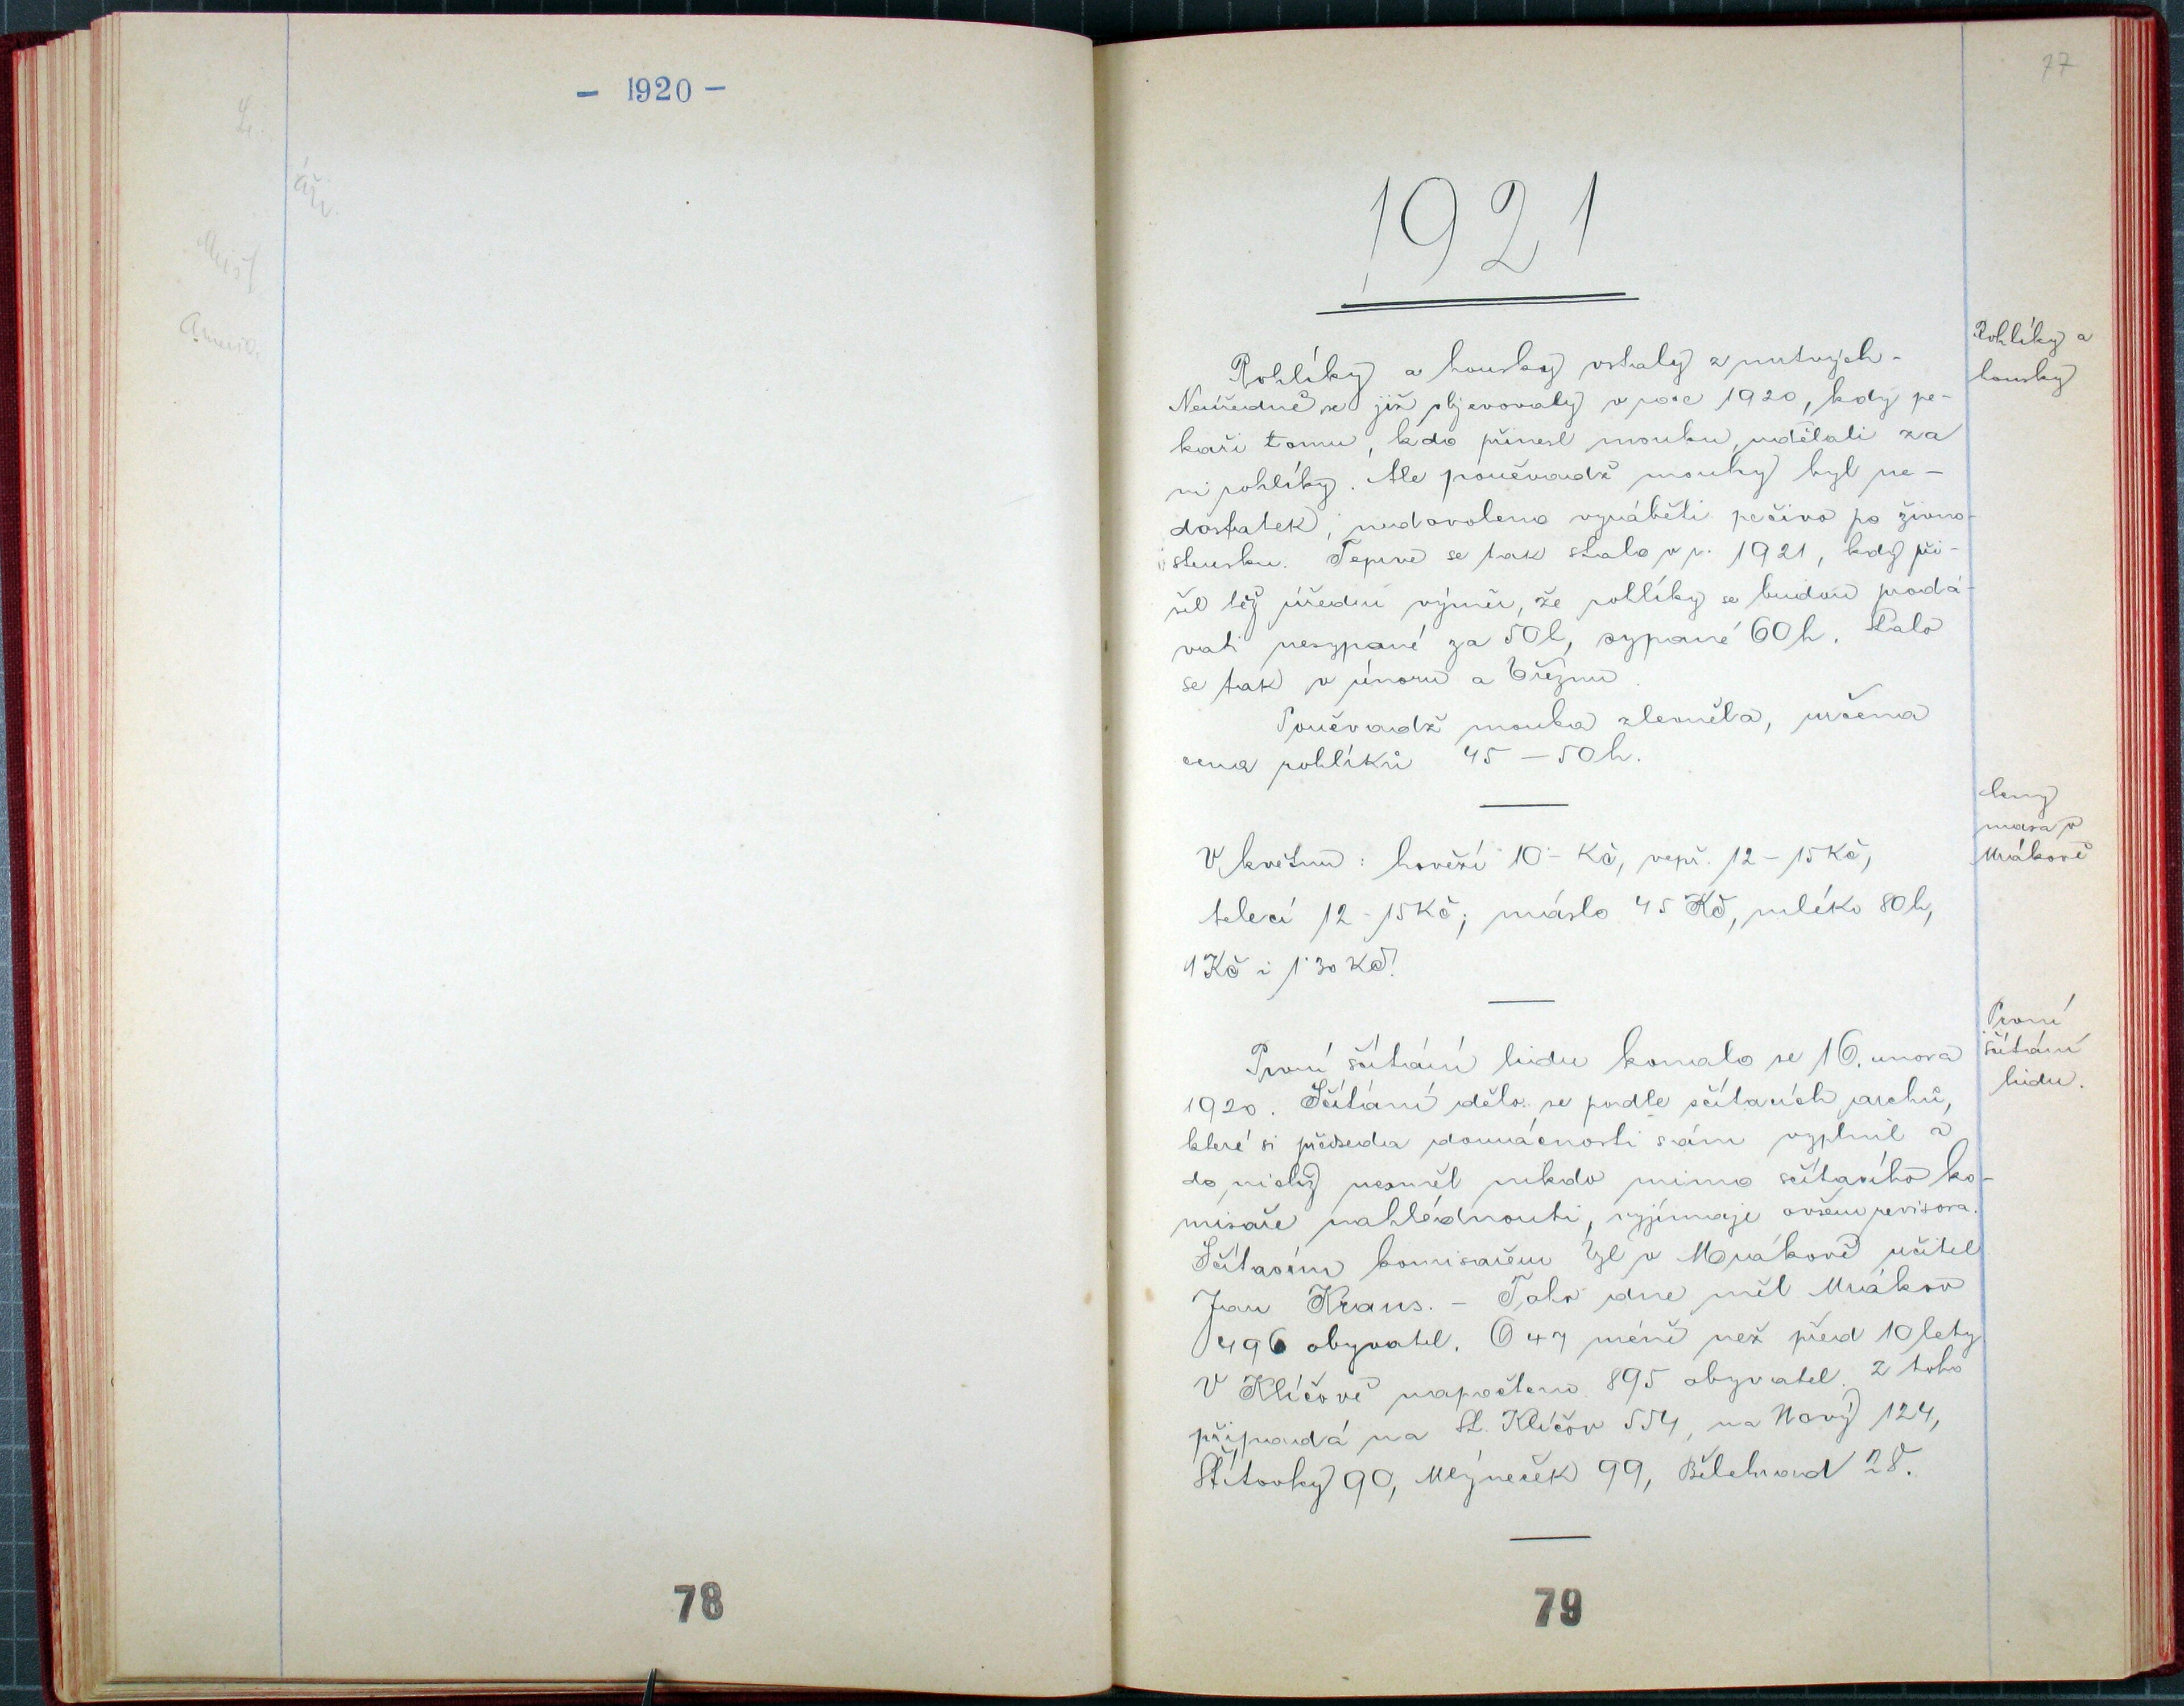 - 1920 -
78
77
1921
Rohlíky a
housky
Rohlíky a housky vstaly z mrtvých -
Neúředně se již objevovaly v roce 1920, kdy pe-
kaři tomu, kdo přinesl mouku, udělali za
ni rohlíky. Ale poněvadž mouky byl ne-
dostatek, nedovoleno vyráběti pečivo po živno-
stensku. Teprve se tak stalo v r. 1921, kdy při-
šel též úřední výměr, že rohlíky se budou prodá-
vati nesypané za 50 h, sypané 60 h. Stalo
se tak v únoru a březnu.
Poněvadž mouka zlevněla, určena
cena rohlíků 45 - 50 h.
Ceny
masa v
Mrákově
V květnu: hovězí 10 - Kč, vepř. 12 - 15 Kč,
telecí 12 - 15 Kč; máslo 45 Kč, mléko 80 h,
1 Kč i 1·30 Kč!
První
sčítání
lidu.
První sčítání lidu konalo se 16. unora
1920. Sčítání dělo se podle sčítacích archů,
které si předseda domácnosti sám vyplnil a
do nichž nesměl nikdo mimo sčítacího ko-
misaře nahlédnouti, vyjímaje ovšem revisora.
Sčítacím komisařem byl v Mrákově učitel
Jan Kraus. - Toho dne měl Mrákov
496 obyvatel. O 47 méně než před 10 lety
V Klíčově napočteno 895 obyvatel. Z toho
připadá na St. Klíčov 554, na Nový 124,
Štítovky 90, Mlýneček 99, Bělehrad 28.
79